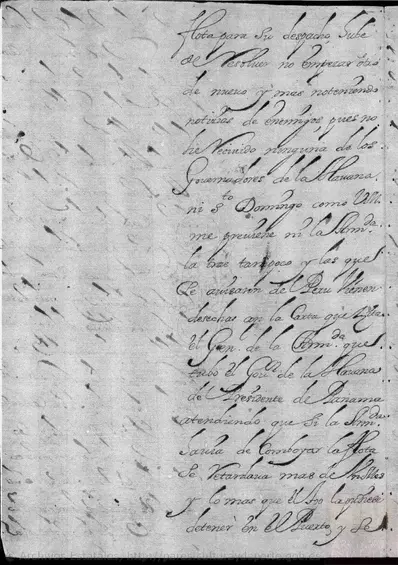 flota para su despacho, hube
de resolver no empesar otro
de nuevo y mas no teniendo
notisias de enemigos pues no
he recivido ninguna de los
Governadores de la Havana,
ni Sto Domingo como
me previene ni la Armda
la trae tampoco y las que
se avisaron del Peru
desechas con la carta que
el Gen. de la Armda que
el Govr de la Havana
del Presidente de Panama
atendiendo que si la Armda
havia de comboyar la flota
se retardava mas de
y lo mas que
detener en el Puerto, y se